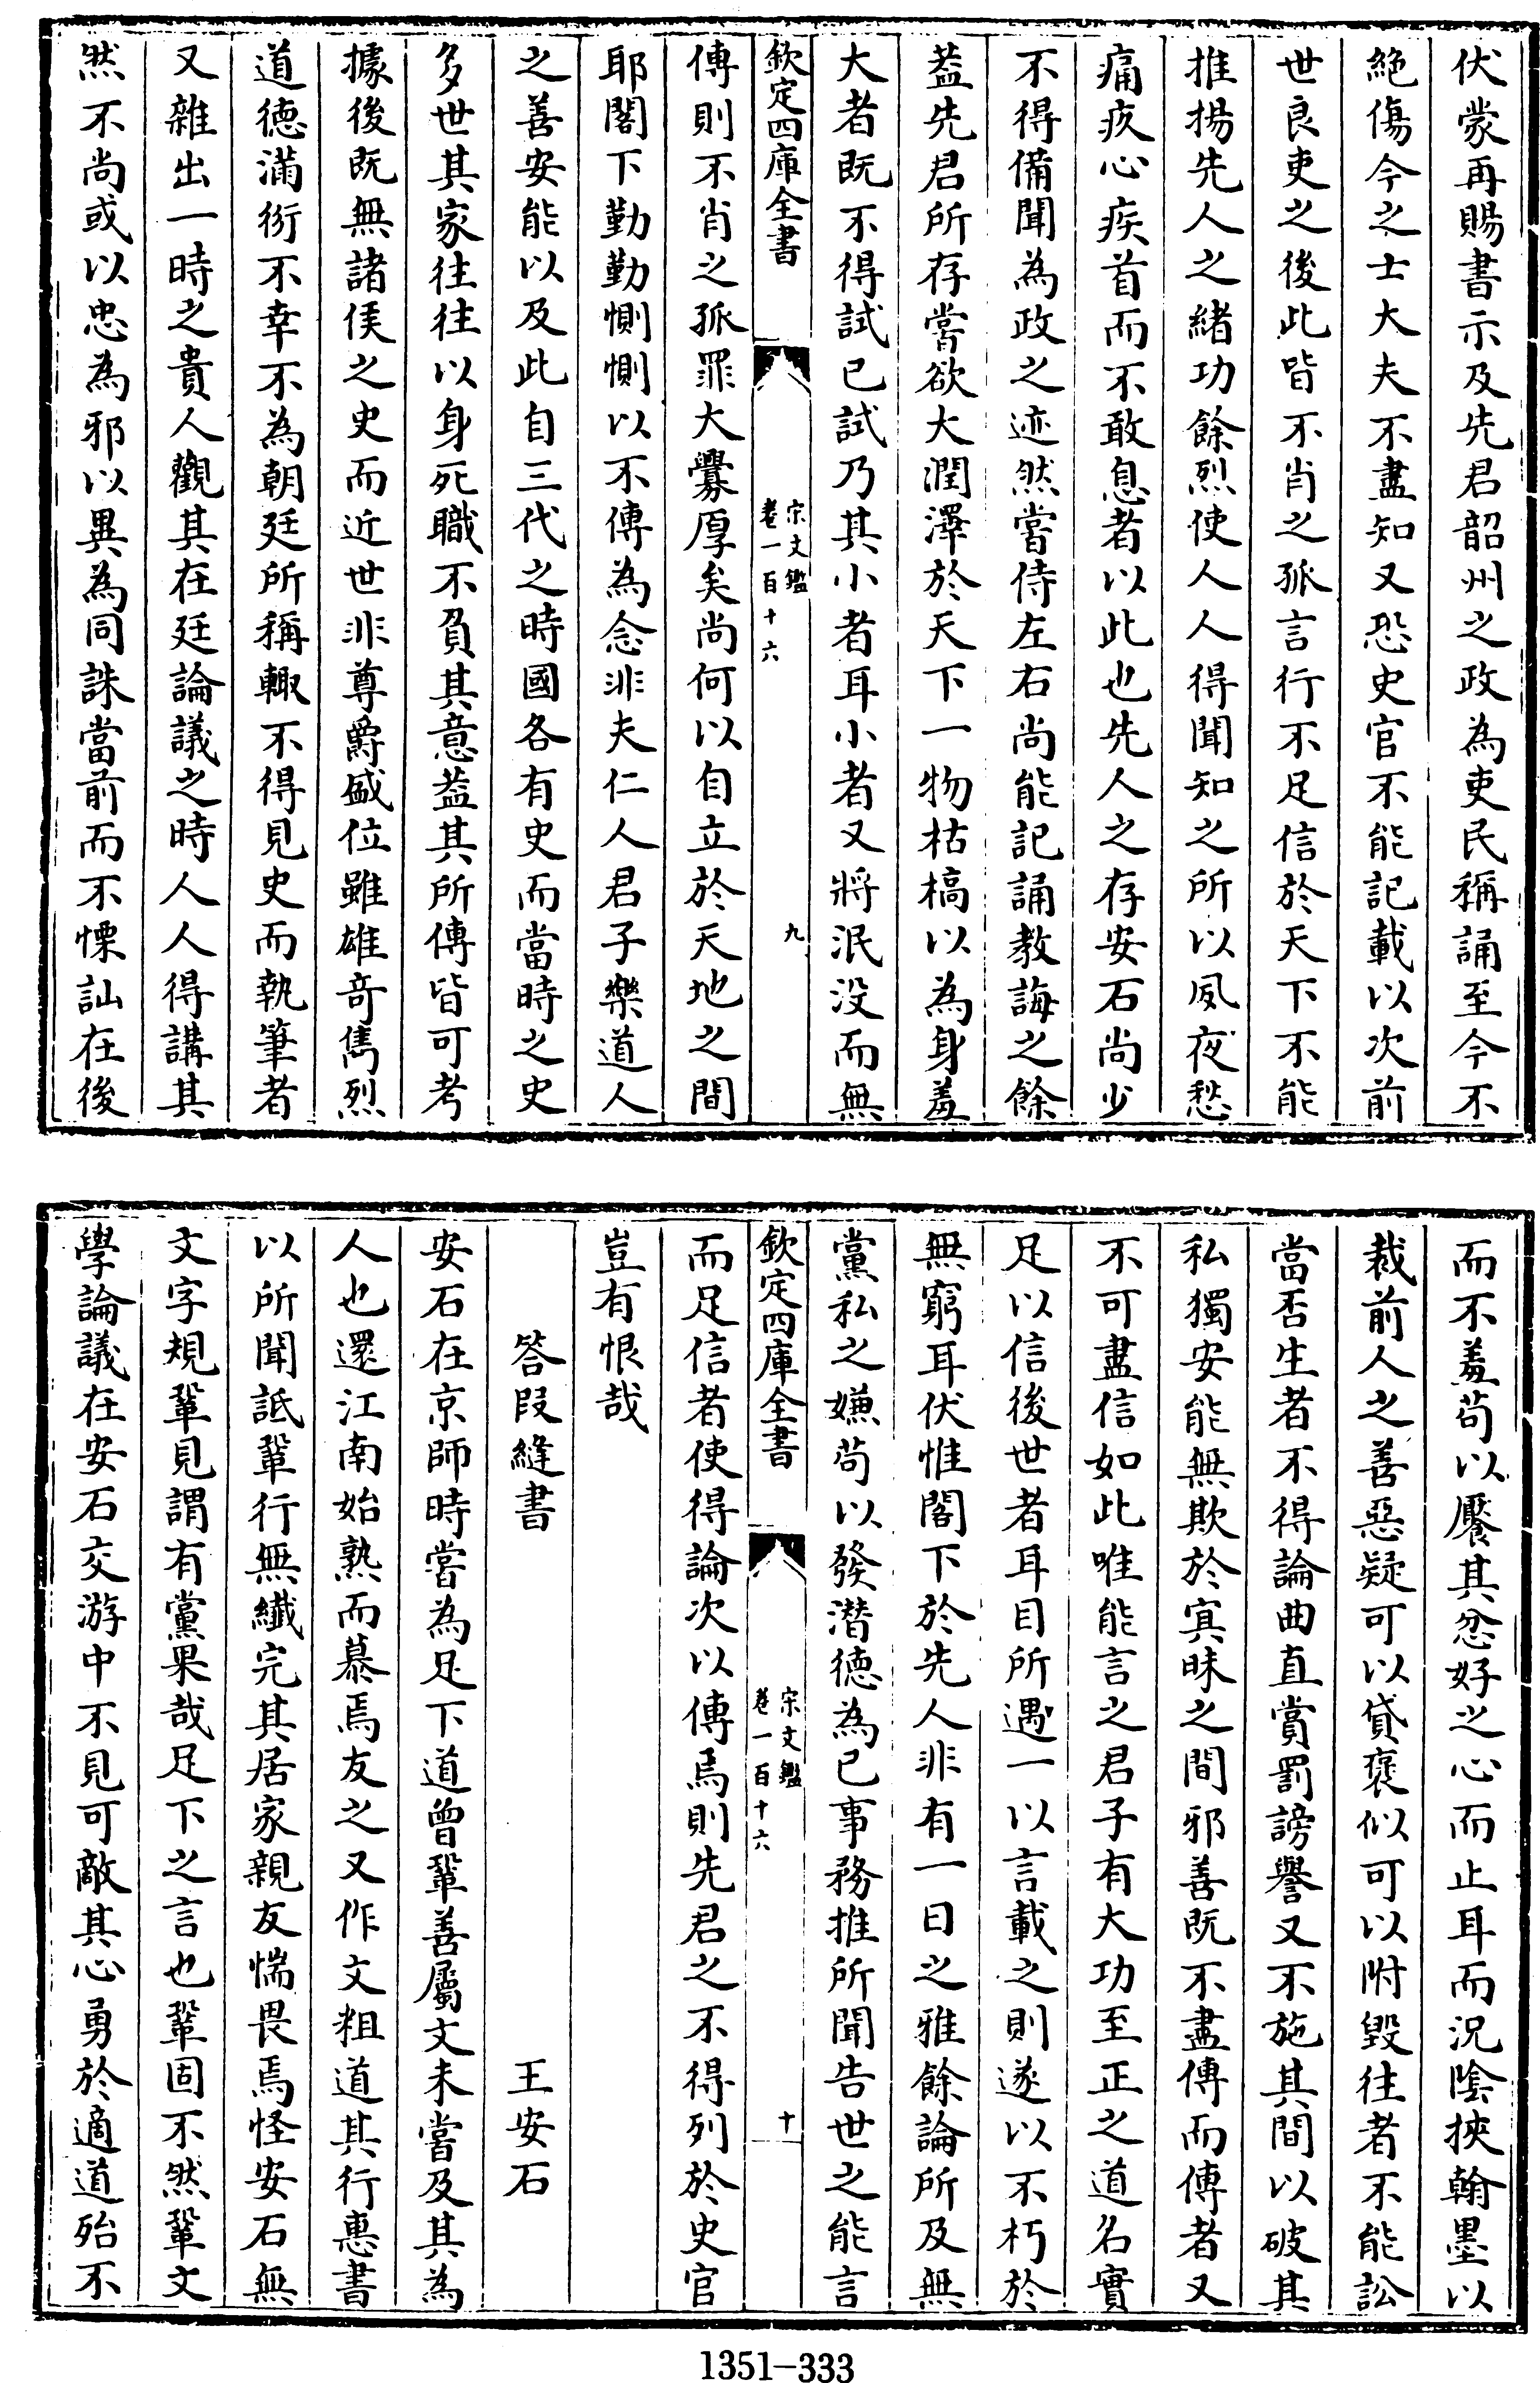 伏蒙再賜書示及先君韶州之政為吏民稱誦至今不
絶傷今之士大夫不盡知又恐史官不能記載以次前
世良吏之後此皆不肖之孤言行不足信於天下不能
推揚先人之緒功餘烈使人人得聞知之所以夙夜愁
痛疚心疾首而不敢息者以此也先人之存安石尚少
不得備聞為政之迹然嘗侍左右尚能記誦教誨之餘
葢先君所存嘗欲大潤澤於天下一物枯槁以為身羞
大者既不得試已試乃其小者耳小者又將泯没而無
欽定四庫全書
宋文鑑
卷一百十六
九
傳則不肖之孤罪大釁厚矣尚何以自立於天地之間
耶閣下勤勤惻惻以不傳為念非夫仁人君子樂道人
之善安能以及此自三代之時國各有史而當時之史
多世其家往往以身死職不負其意葢其所傳皆可考
據後既無諸侯之史而近世非尊爵盛位雖雄奇儁烈
道德滿衍不幸不為朝廷所稱輙不得見史而執筆者
又雜出一時之貴人觀其在廷論議之時人人得講其
然不尚或以忠為邪以異為同誅當前而不慄訕在後
而不羞苟以饜其忿好之心而止耳而況陰挾翰墨以
裁前人之善惡疑可以貸襃似可以附毀往者不能訟
當否生者不得論曲直賞罰謗譽又不施其間以破其
私獨安能無欺於冥昧之間邪善既不盡傳而傳者又
不可盡信如此唯能言之君子有大功至正之道名實
足以信後世者耳目所遇一以言載之則遂以不朽於
無窮耳伏惟閣下於先人非有一日之雅餘論所及無
黨私之嫌苟以發潛德為已事務推所聞告世之能言
欽定四庫全書
宋文鑑
卷一百十六
十
而足信者使得論次以傳焉則先君之不得列於史官
豈有恨哉
答段縫書 王安石
安石在京師時嘗為足下道曾鞏善屬文未嘗及其為
人也還江南始熟而慕焉友之又作文粗道其行惠書
以所聞詆鞏行無纖完其居家親友惴畏焉怪安石無
文字規鞏見謂有黨果哉足下之言也鞏固不然鞏文
學論議在安石交游中不見可敵其心勇於適道殆不
1351-333